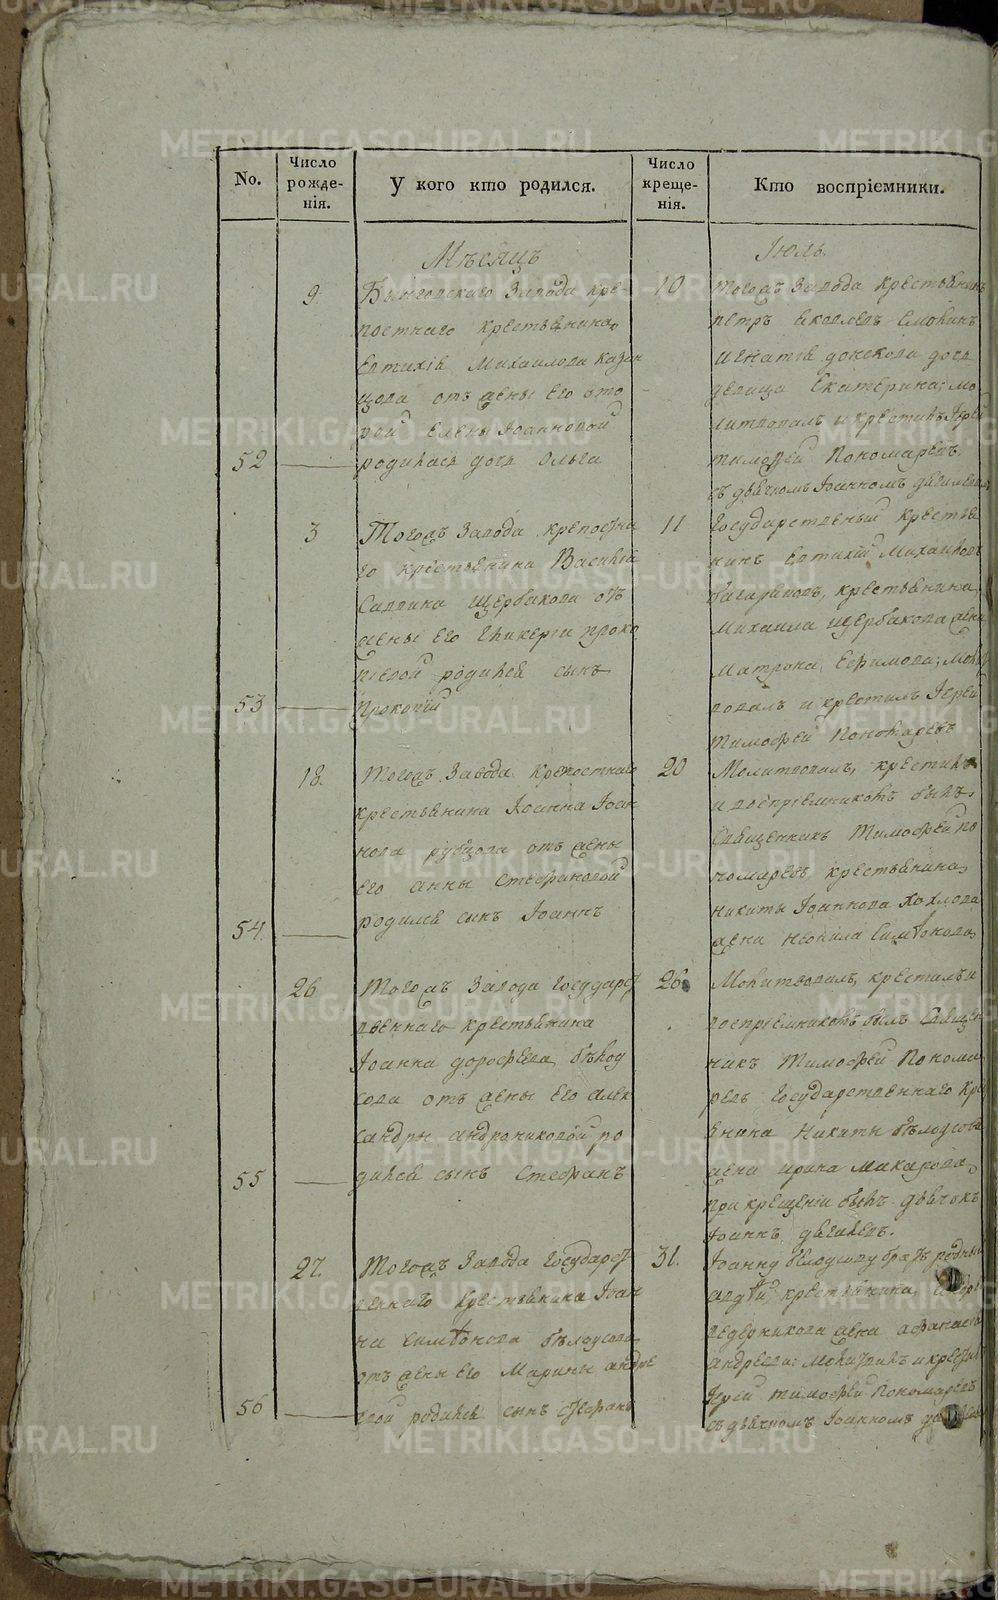 No.
Число рожде-нія.
У кого кто родился.
Число креще-нія.
Кто воспріємники.
Мѣсяцъ
Іюль
9.
Быньговскаго Завода кре
постнаго крестьянина
Евтихія Михаилова Казан
цова отъ жены его вто
рой Елены Іоанновой
52
родилась дочь Ольга
10
Тогожъ Завода крестьянинъ
петръ Яковлевъ
дочь
девица Екатерина; мо
литвовалъ и крестилъ Іерей
тимофей Пономаревъ
съ дьячкомъ Іоанномъ
3
Тогожъ Завода крепостна
го крестьянина Василія
Саввина Щербакова отъ
жены его Гликеріи проко
піевой родился сынъ
53
Прокопій
11
Государственный крестья
нинъ Евтихій Михайловъ
крестьянина
Михаила Щербакова жена
Матрона Ефимова; молит
вовалъ и крестилъ Іерей
Тимофей Пономаревъ
18.
Тогожъ Завода Крепостнаго
крестьянина Іоанна Іоан
нова рубцова отъ жены
его анны Стефановой
54.
родился сынъ Іоаннъ
20
Молитвовалъ, крестилъ
и воспріемникомъ былъ
Священникъ Тимофей по
номаревъ крестьянина
никиты Іоаннова Хохлова
жена Неонила
26
Тогожъ Завода Государст
веннаго крестьянина
Іоанна дорофеева бѣлоу
сова отъ жены его алек
сандры андрониковой ро
55
дился сынъ Стефанъ
26
Молитвовалъ, крестилъ и
воспріемникомъ былъ Священ
никъ Тимофей Понома
ревъ Государственнаго Кре
янина Никиты бѣлоусова
жена ирина Макарова
при крещеніи былъ дьячокъ
Іоаннъ
27.
Тогожъ Завода Государст
веннаго Крестьянина Іоан
на бѣлоусова
отъ жены его Марины андре
56
евой родился сынъ стефанъ
31.
Іоанну бѣлоусову братъ родный
крестьянина
жена
андреева; молитвилъ и крестилъ
Іерей тимофей Пономаревъ
съ дьячкомъ Іоанномъ
METRIKI.GASO-URAL.RU